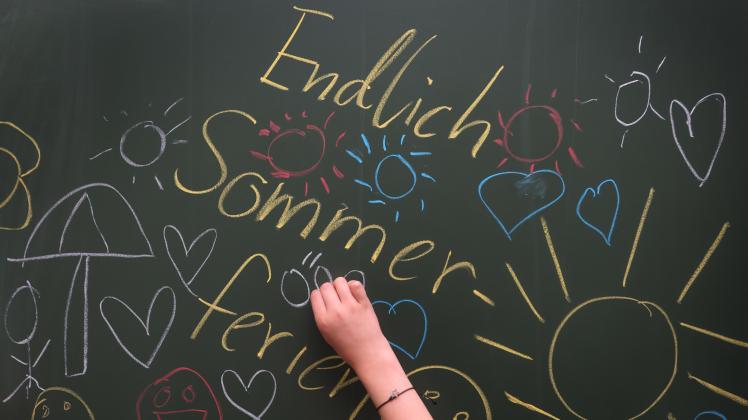 Endlich
Sommer
ferien